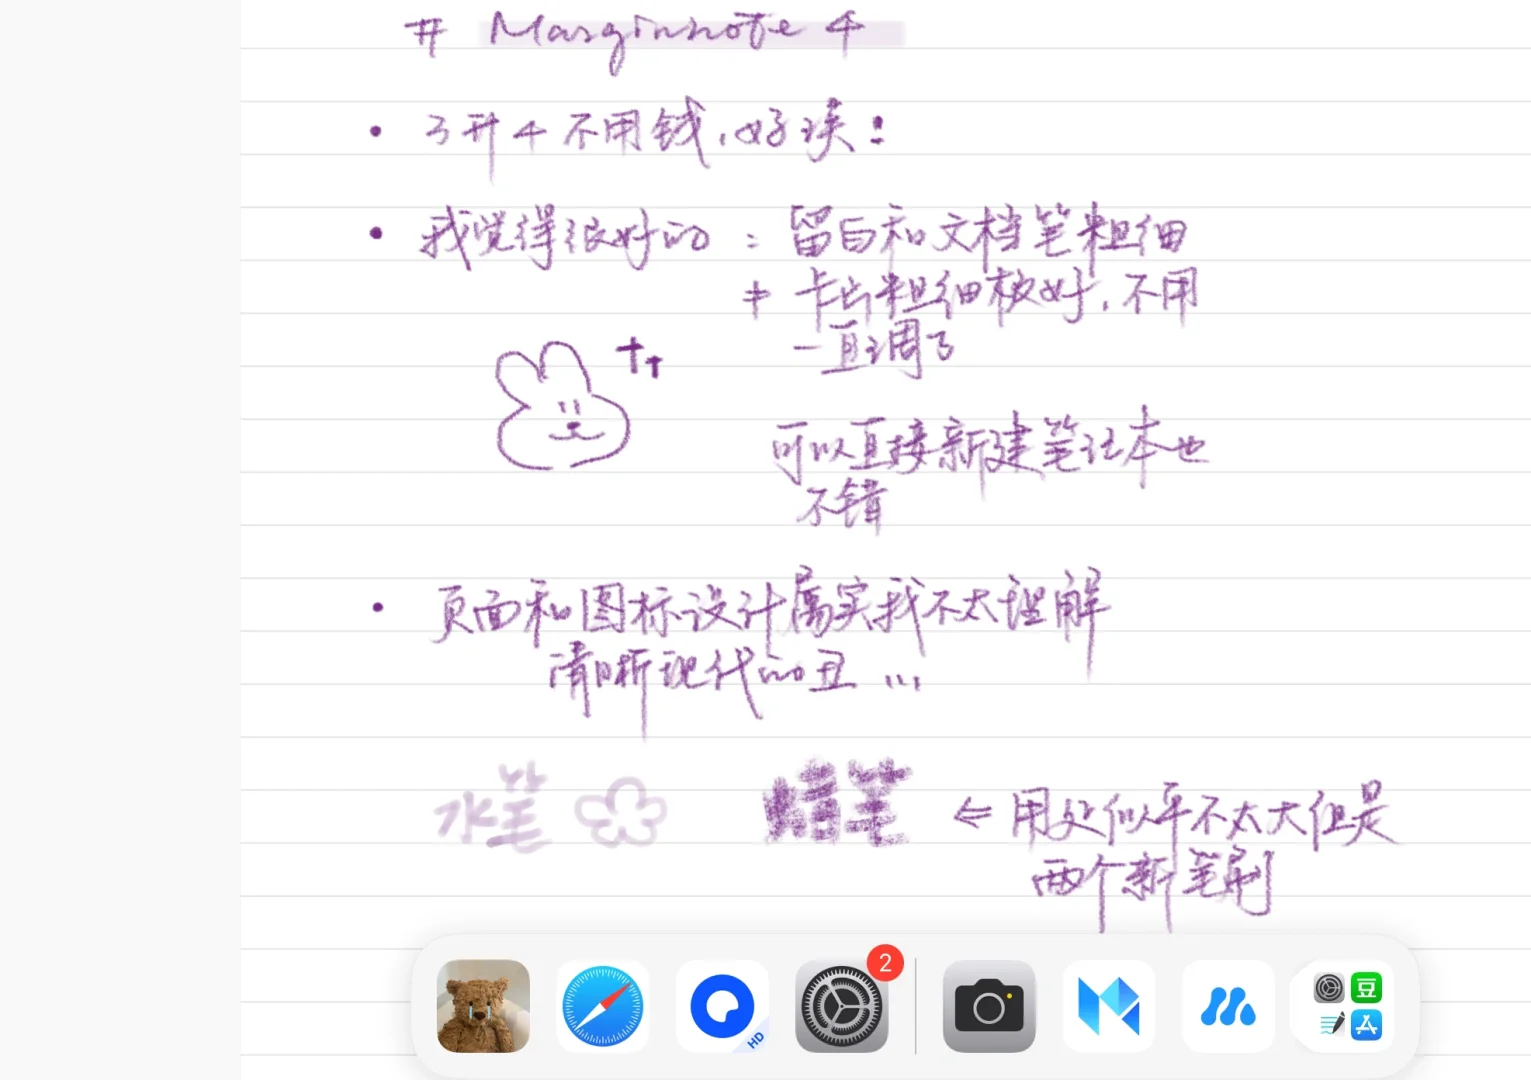 # Marginnote 4
• 3升4不用钱,好诶!
• 我觉得很好的:留白和文档笔粗细
≠卡片粗细校好,不用
一直调了
可以直接新建笔记本也
不错
• 页面和图标设计属实我不太理解
清晰现代的丑...
水笔 蜡笔 ⇐ 用处似乎不太大但是
两个新笔刷
2
HD
豆